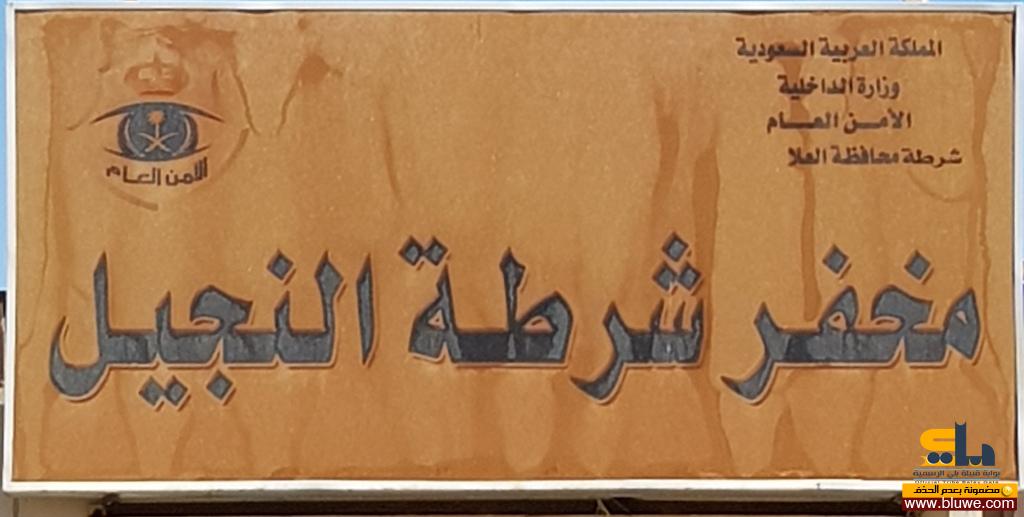 المملكة العربية السعودية
وزارة الداخلية
الأمن العام
شرطة محافظة العلا
الأمن العام
مخفر شرطة النجيل
بلي
بوابة قبيلة بلي الرسمية
مضمونة بعدم الحذف
www.bluwe.com